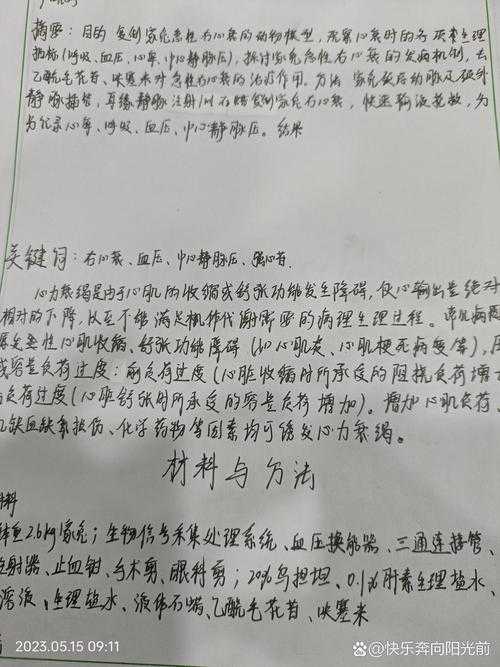 摘要：目的 复制家兔急性右心衰的动物模型，观察心衰时的各项生理
指标（呼吸、血压、心率、中心静脉压），探讨家兔急性右心衰的发病机制，去
乙酰毛花苷、呋塞米对急性右心衰的治疗作用。方法 家兔颈总动脉及颈外
静脉插管，耳缘静脉注射液体石蜡复制家兔右心衰，快速输液
记录心率、呼吸、血压、中心静脉压。结果
关键词：右心衰、血压、中心静脉压、强心苷
心力衰竭是由于心肌的收缩或舒张功能发生障碍，使心输出量绝对
相对的下降，以至不能满足机体代谢需要的病理生理过程。常见病因
急性心肌收缩、舒张功能障碍（如心肌炎、心肌梗死病变等），
或容量负荷过度：前负荷过度（心脏收缩时所承受的阻抗负荷增
负荷过度（心脏舒张时所承受的容量负荷增加）。增加心肌负荷、
肌缺血缺氧损伤、化学药物等因素均可诱发心力衰竭。
材料与方法
材料
体重2.6kg家兔；生物信号采集处理系统、血压换能器、三通连接管、
注射器、止血钳、手术剪、眼科剪；20%乌拉坦、0.1%肝素生理盐水、
溶液、生理盐水、液体石蜡、乙酰毛花苷、呋塞米
2023.05.15 09:11
@快乐奔向阳光前